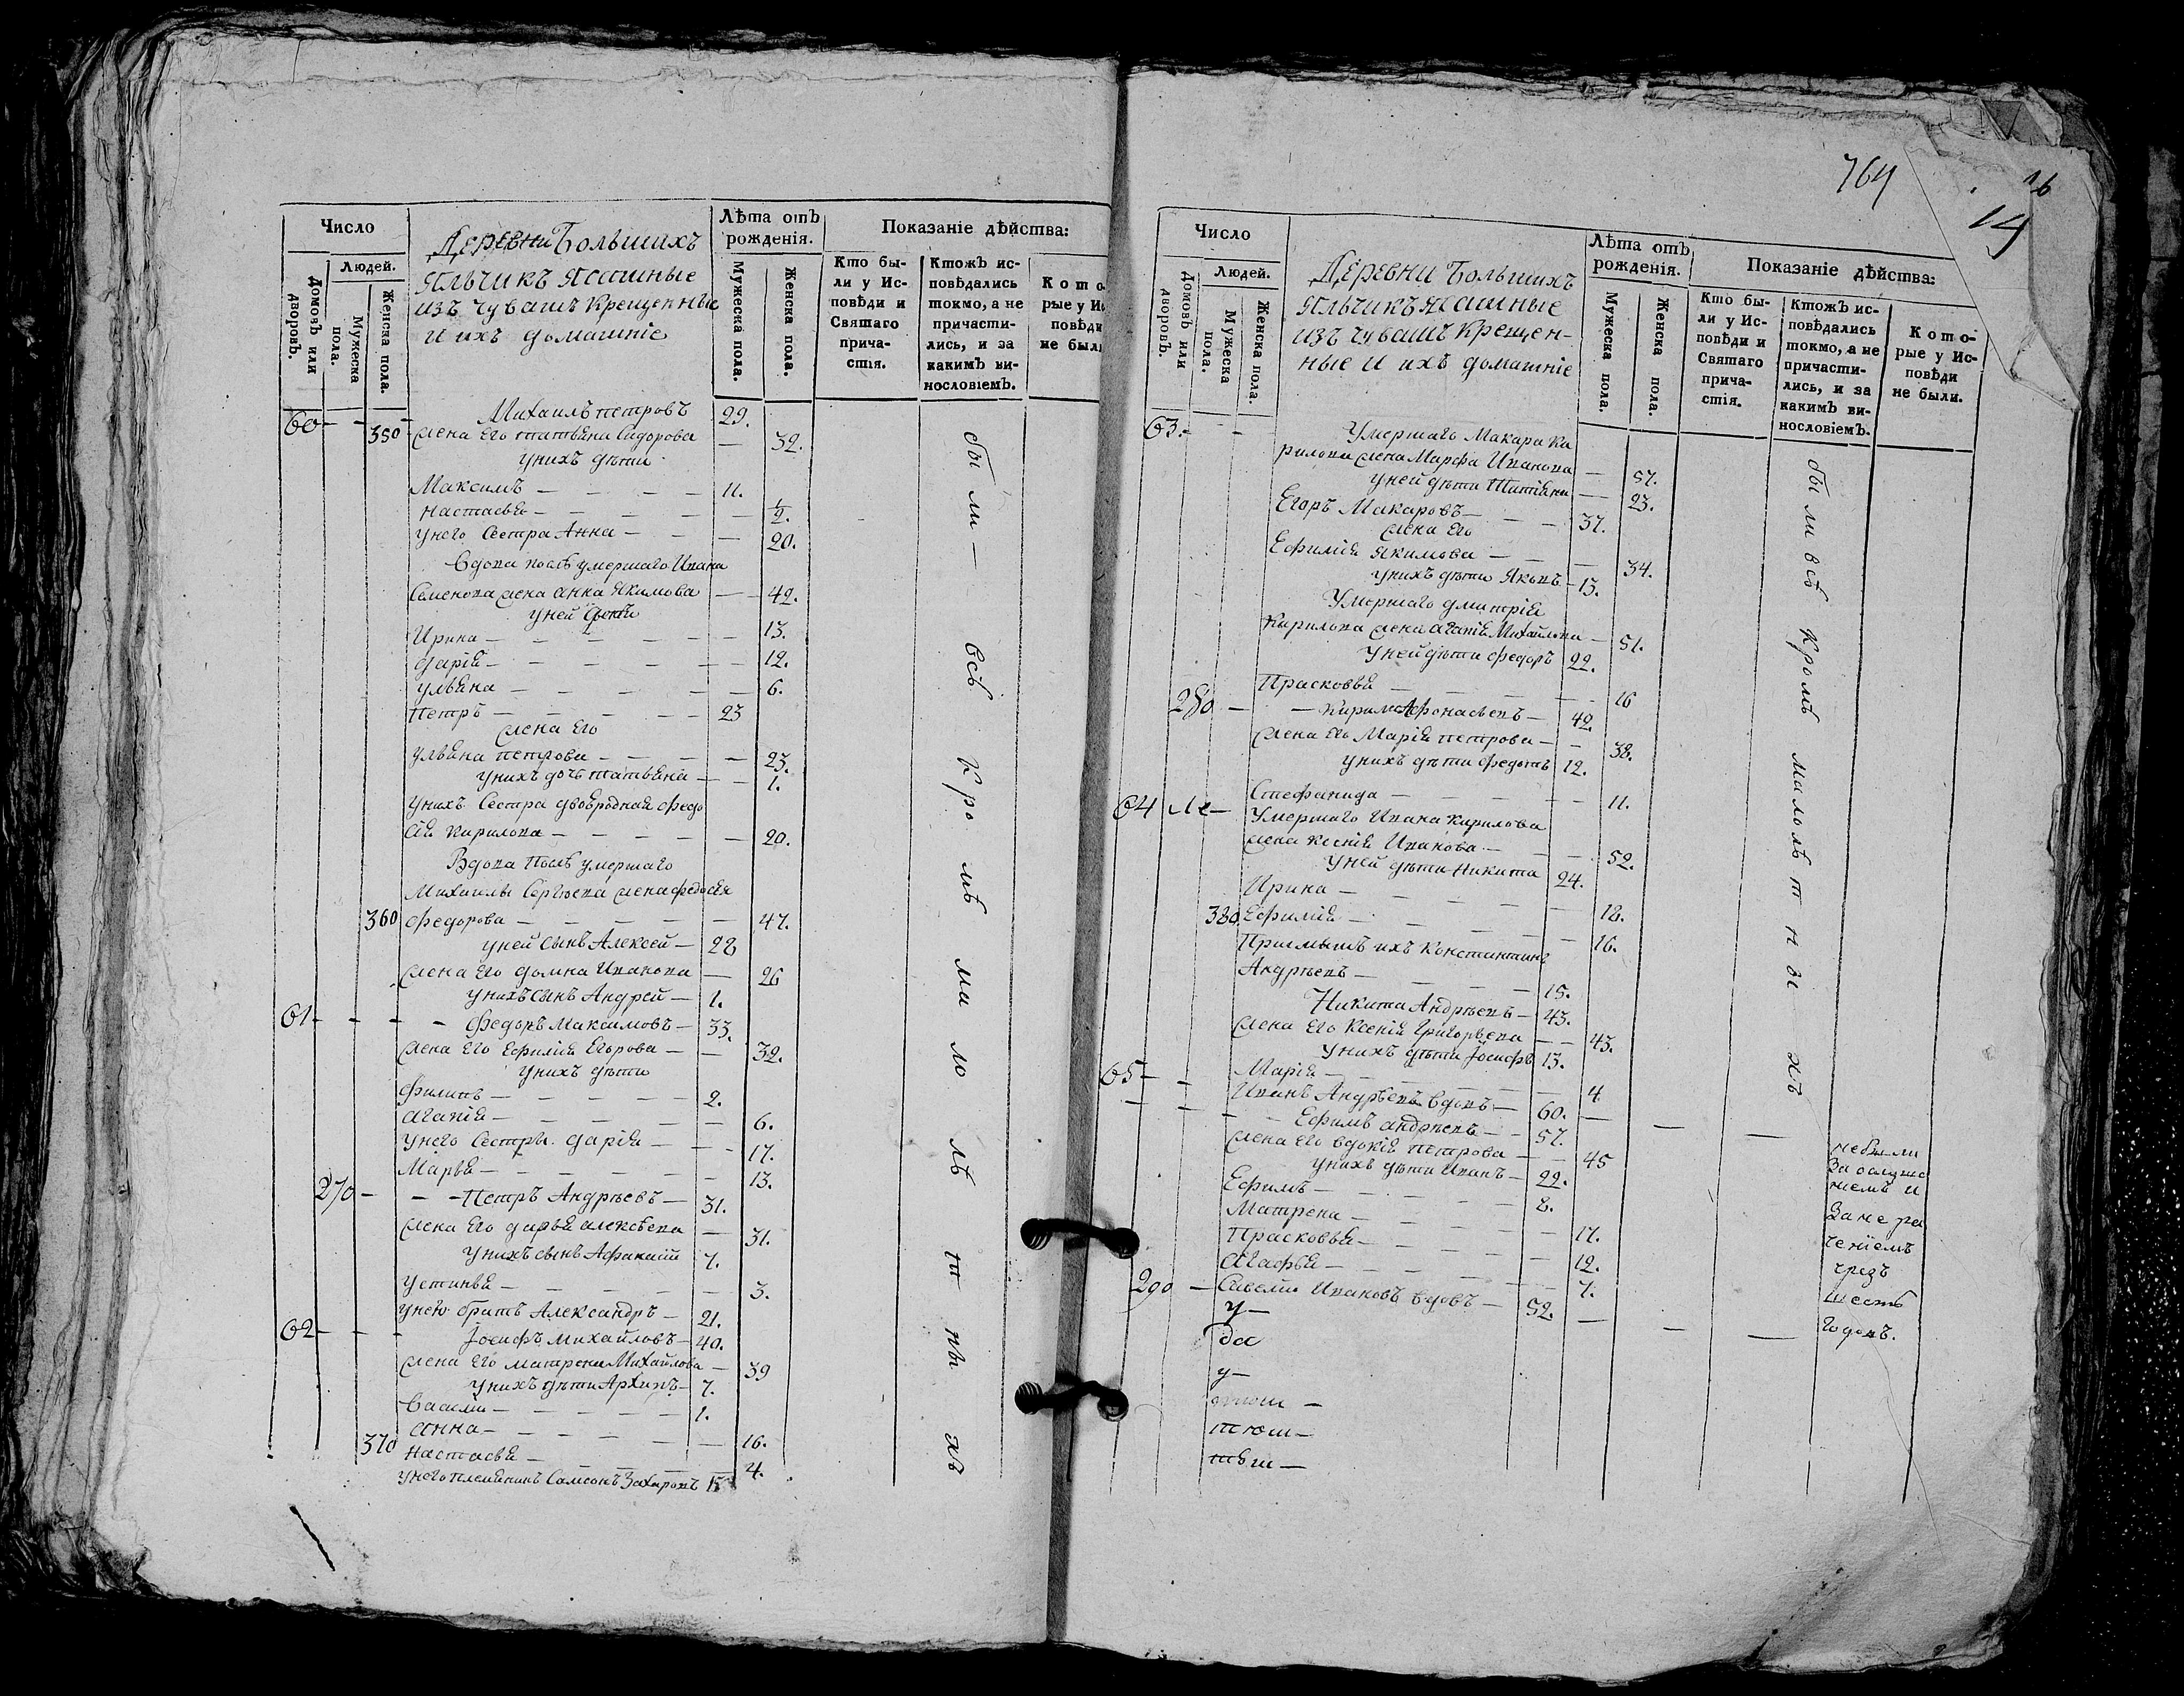 Число
Людей.
Домовъ или дворовъ.
Мужеска пола.
Женска пола.
Деревни Большихъ
Яльчикъ Ясашные
изъ чувашъ крещенные
и ихъ домашніе
Лѣта отъ рожденія.
Мужеска пола.
Женска пола.
Показаніе дѣйства:
Кто бы-
ли у Ис-
повѣди и
Святаго
прича-
стія.
Ктожъ ис-
повѣдались
токмо, а не
причасти-
лись, и за
какимъ ви-
нословіемъ.
Кото
рые у Ис
повѣди
не были
60 - - Михаилъ петровъ 29.
350 жена Его татьяна Сидорова — 32.
у нихъ дѣти
Максимъ — — — — 11.
настасья — — — — — ½.
у него Сестра Анна — — — 20.
вдова послѣ умершаго Ивана
Семенова жена анна Якимова — — 42.
у ней дѣти
Ирина — — — — — — 13.
дарія — — — — — — 12.
ульяна — — — — — 6.
Петръ — — — — — 23
жена Его
ульяна петрова — — — — 23.
у нихъ дочь татьяна — — 1.
у нихъ Сестра двоюродная федо
сія кирилова — — — — — 20.
Вдова послѣ умершаго
Михаилы Сергѣева жена федосья
360 федорова — — — — — 47.
у ней сынъ Алексей — 28
жена Его домна Иванова — 26
у нихъ сынъ Андрей — 1.
61 - - - - федоръ Максимовъ — 33.
жена Его Ефимія Егорова — — 32.
у нихъ дѣти
филипъ — — — — — 2.
агапія — — — — — — 6.
у него Сестры дарія — — - 17.
Марья — — — — — — 13.
270 - - - Петръ Андрѣевъ — 31.
жена Его дарья алексѣева — 31.
у нихъ сынъ Афанасій 7.
Устинья — — — — — — 3.
у него братъ Александръ — 21.
62 - - - Іосифъ михайловъ — 40.
жена Его матрена Михайлова — 39
у нихъ дѣти Архипъ — 7.
Василій — — — — — 1.
анна — — — — — — 16.
370 настасья — — — — 4.
у него племянникъ Самсонъ Захаровъ 15
были — всѣ кромѣ малолѣтныхъ
764
14
16
Число
Людей.
Домовъ или дворовъ.
Мужеска пола.
Женска пола.
Деревни Большихъ
Яльчикъ ясашные
изъ чувашъ крещен-
ные и ихъ домашніе
Лѣта отъ рожденія.
Мужеска пола.
Женска пола.
Показаніе дѣйства:
Кто бы-
ли у Ис-
повѣди и
Святаго
прича-
стія.
Ктожъ ис-
повѣдались
токмо, а не
причасти-
лись, и за
какимъ ви-
нословіемъ.
Кото-
рые у Ис-
повѣди
не были.
63. - - Умершаго Макара Ки
рилова жена Марфа Иванова — 57.
у ней дѣти Татіяна — 23.
Егоръ Макаровъ — — — 37.
жена Его
Ефимія якимова — — — 34.
у нихъ дѣти Яковъ — 13.
Умершаго дмитрія
Кирилова жена агапія Михайлова — 51.
у ней дѣти федоръ 22.
Прасковья — — — — — 16
280 — — кирила Афонасьевъ — 42.
жена Его Марія петрова — - 38.
у нихъ дѣти федотъ 12.
Стефанида — — — — — 11.
64 Умершаго Ивана кирилова
жена ксенія Иванова — — — 52.
у ней дѣти Никита 24.
Ирина — — — — — 18.
380 Ефимія — — — — — 16.
Пріемышъ ихъ Константинъ
Андрѣевъ — — — — 15.
Никита Андрѣевъ — 43.
жена Его Ксенія Григорьева — — 43.
у нихъ дѣти Іосифъ 13.
65 - - Марія — — — — — 4
Иванъ Андрѣевъ вдовъ — 60. —
Ефимъ андрѣевъ — - 57.
жена Его вдокія петрова — — 45
у нихъ дѣти Иванъ — 22.
Ефимъ — — — — 8.
Матрена — — — — — 17.
Прасковья — — — — — 12.
Агафья — — — — — 7.
290 — Савелій Ивановъ вдовъ — 52. —
у —
да
у —
тюш —
твш —
были всѣ кромѣ малолѣтныхъ
небыли
За
ніемъ и
За не ра
ченіемъ
чрезъ
шесть
Годовъ.